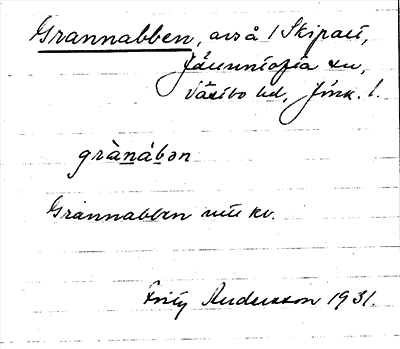 Grannabben, avså i Skipait,
Järnntorpa sn,
Västbo hd, Jönk. l.
grànábən
Grannabben utit kv.
Fritz Andersson 1931.